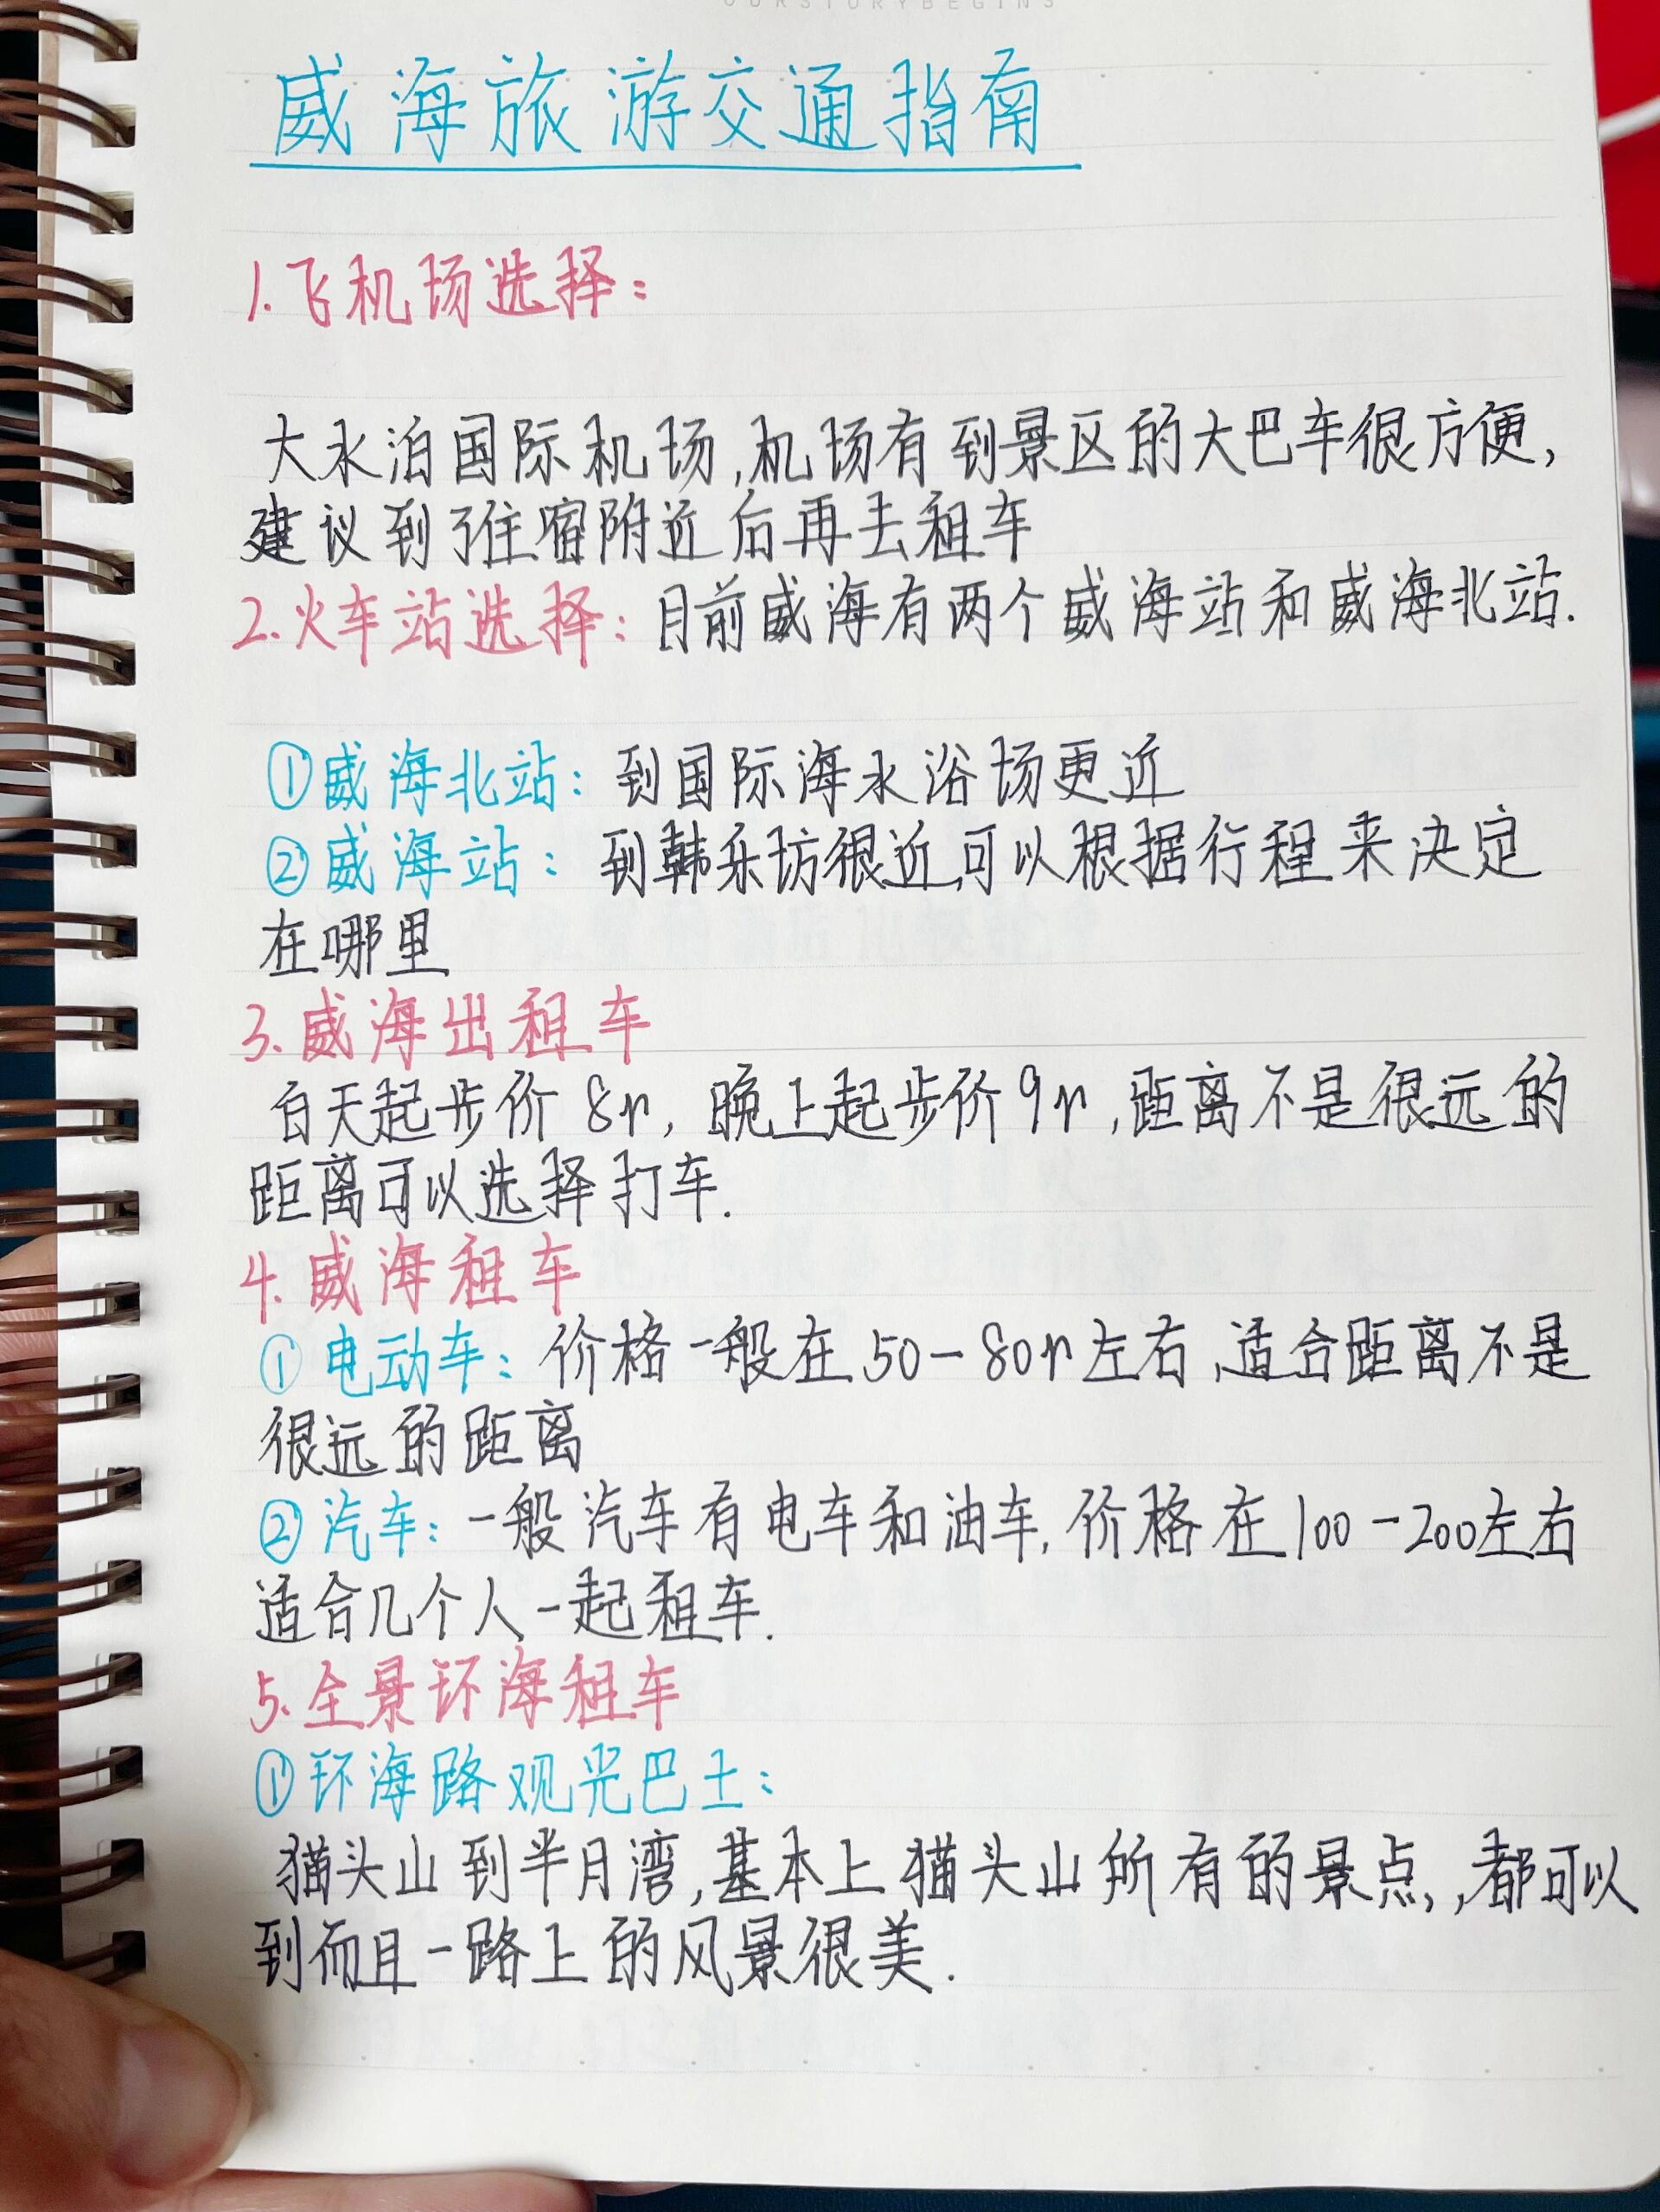 OURSTORYBEGINS
威海旅游交通指南
1.飞机场选择：
大水泊国际机场,机场有到景区的大巴车很方便,
建议到了住宿附近后再去租车
2.火车站选择：目前威海有两个威海站和威海北站.
①威海北站：到国际海水浴场更近
②威海站：到韩乐坊很近,可以根据行程来决定
在哪里
3.威海出租车
白天起步价8r,晚上起步价9r,距离不是很远的
距离可以选择打车.
4.威海租车
①电动车：价格一般在50-80r左右,适合距离不是
很远的距离
②汽车：一般汽车有电车和油车,价格在100-200左右
适合几个人一起租车.
5.全景环海租车
①环海路观光巴士：
猫头山到半月湾,基本上猫头山所有的景点,,都可以
到而且一路上的风景很美.